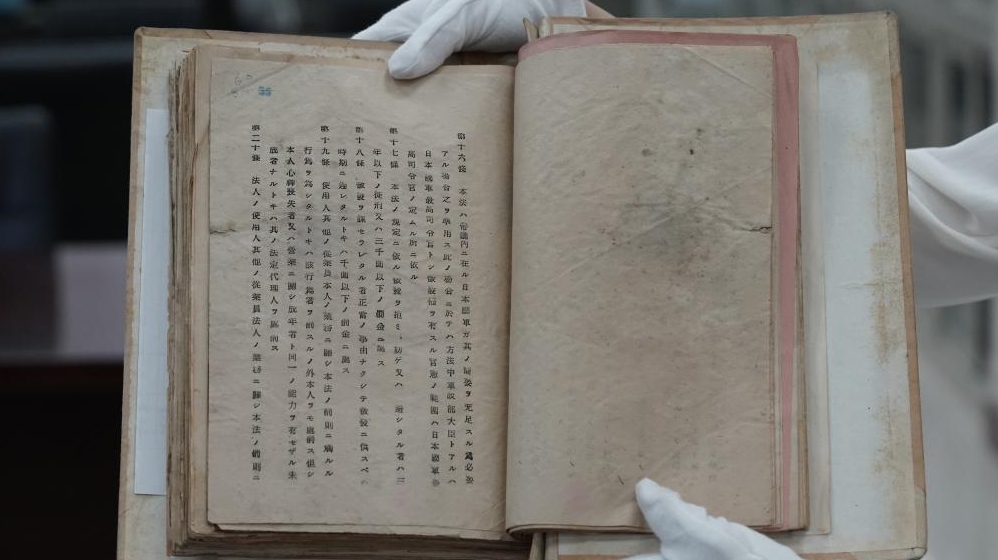 第十六條 本法ハ帝國內ニ在ル日本國軍ガ其ノ需要ヲ充足スル爲必要
アル場合之ヲ準用ス此ノ場合ニ於テハ方法中軍政部大臣トアルハ
日本國軍最高司令官トシ徵發權ヲ有スル官憲ノ範圍ハ日本國軍
高司令官ノ定ムル所ニ依ル
第十七條 本法ノ規定ニ依ル徵發ヲ拒ミ、妨ゲ又ハ シタル者ハ三
年以下ノ徒刑又ハ三千圓以下ノ罰金ニ處ス
第十八條 徵發ヲ課セラレタル者正當ノ事由ナクシテ徵發ニ供スベ
時期ニ遲レタルトキハ千圓以下ノ罰金ニ處ス
第十九條 使用人其他ノ從業員本人ノ業務ニ關シ本法ノ罰則ニ觸ルル
行爲ヲ爲シタルトキハ該行爲者ヲ罰スルノ外本人ヲモ處罰ス但シ
本人心神喪失者又ハ營業ニ關シ成年者ト同一ノ能力ヲ有セザル未
成者ナルトキハ其ノ法定代理人ヲ處罰ス
第二十條 法人ノ使用人其他ノ從業員法人ノ業務ニ關シ本法ノ罰則ニ